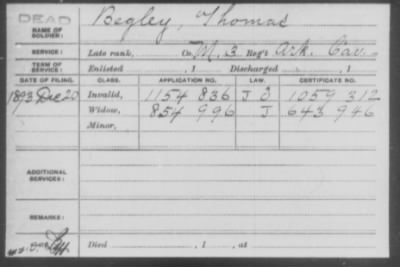 DEAD
NAME OF SOLDIER: Begley, Thomas
SERVICE: Late rank, Co. M. 3 Reg't Ark. Cav.
TERM OF SERVICE: Enlisted , 1 Discharged , 1
DATE OF FILING. CLASS. APPLICATION NO. LAW. CERTIFICATE NO.
1893 Dec 20 Invalid, 1154 836 J 1059 312
Widow, 854 996 J 643 946
Minor,
ADDITIONAL SERVICES:
REMARKS:
Died , 1 , at